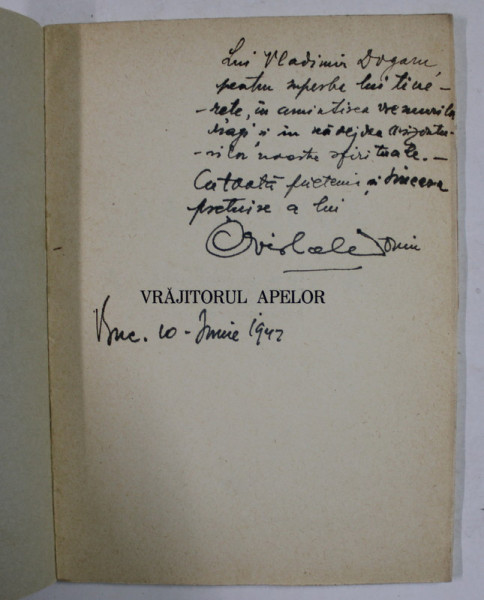 Lui Vladimir Dogaru,
pentru superba lui tine-
-rete, în amintirea vremurilor
dragi și în nădejdea
-rilor noastre spirituale. -
Cu toată prietenia și sincera
prețuire a lui
VRĂJITORUL APELOR
Buc. 10 - Iunie 1942